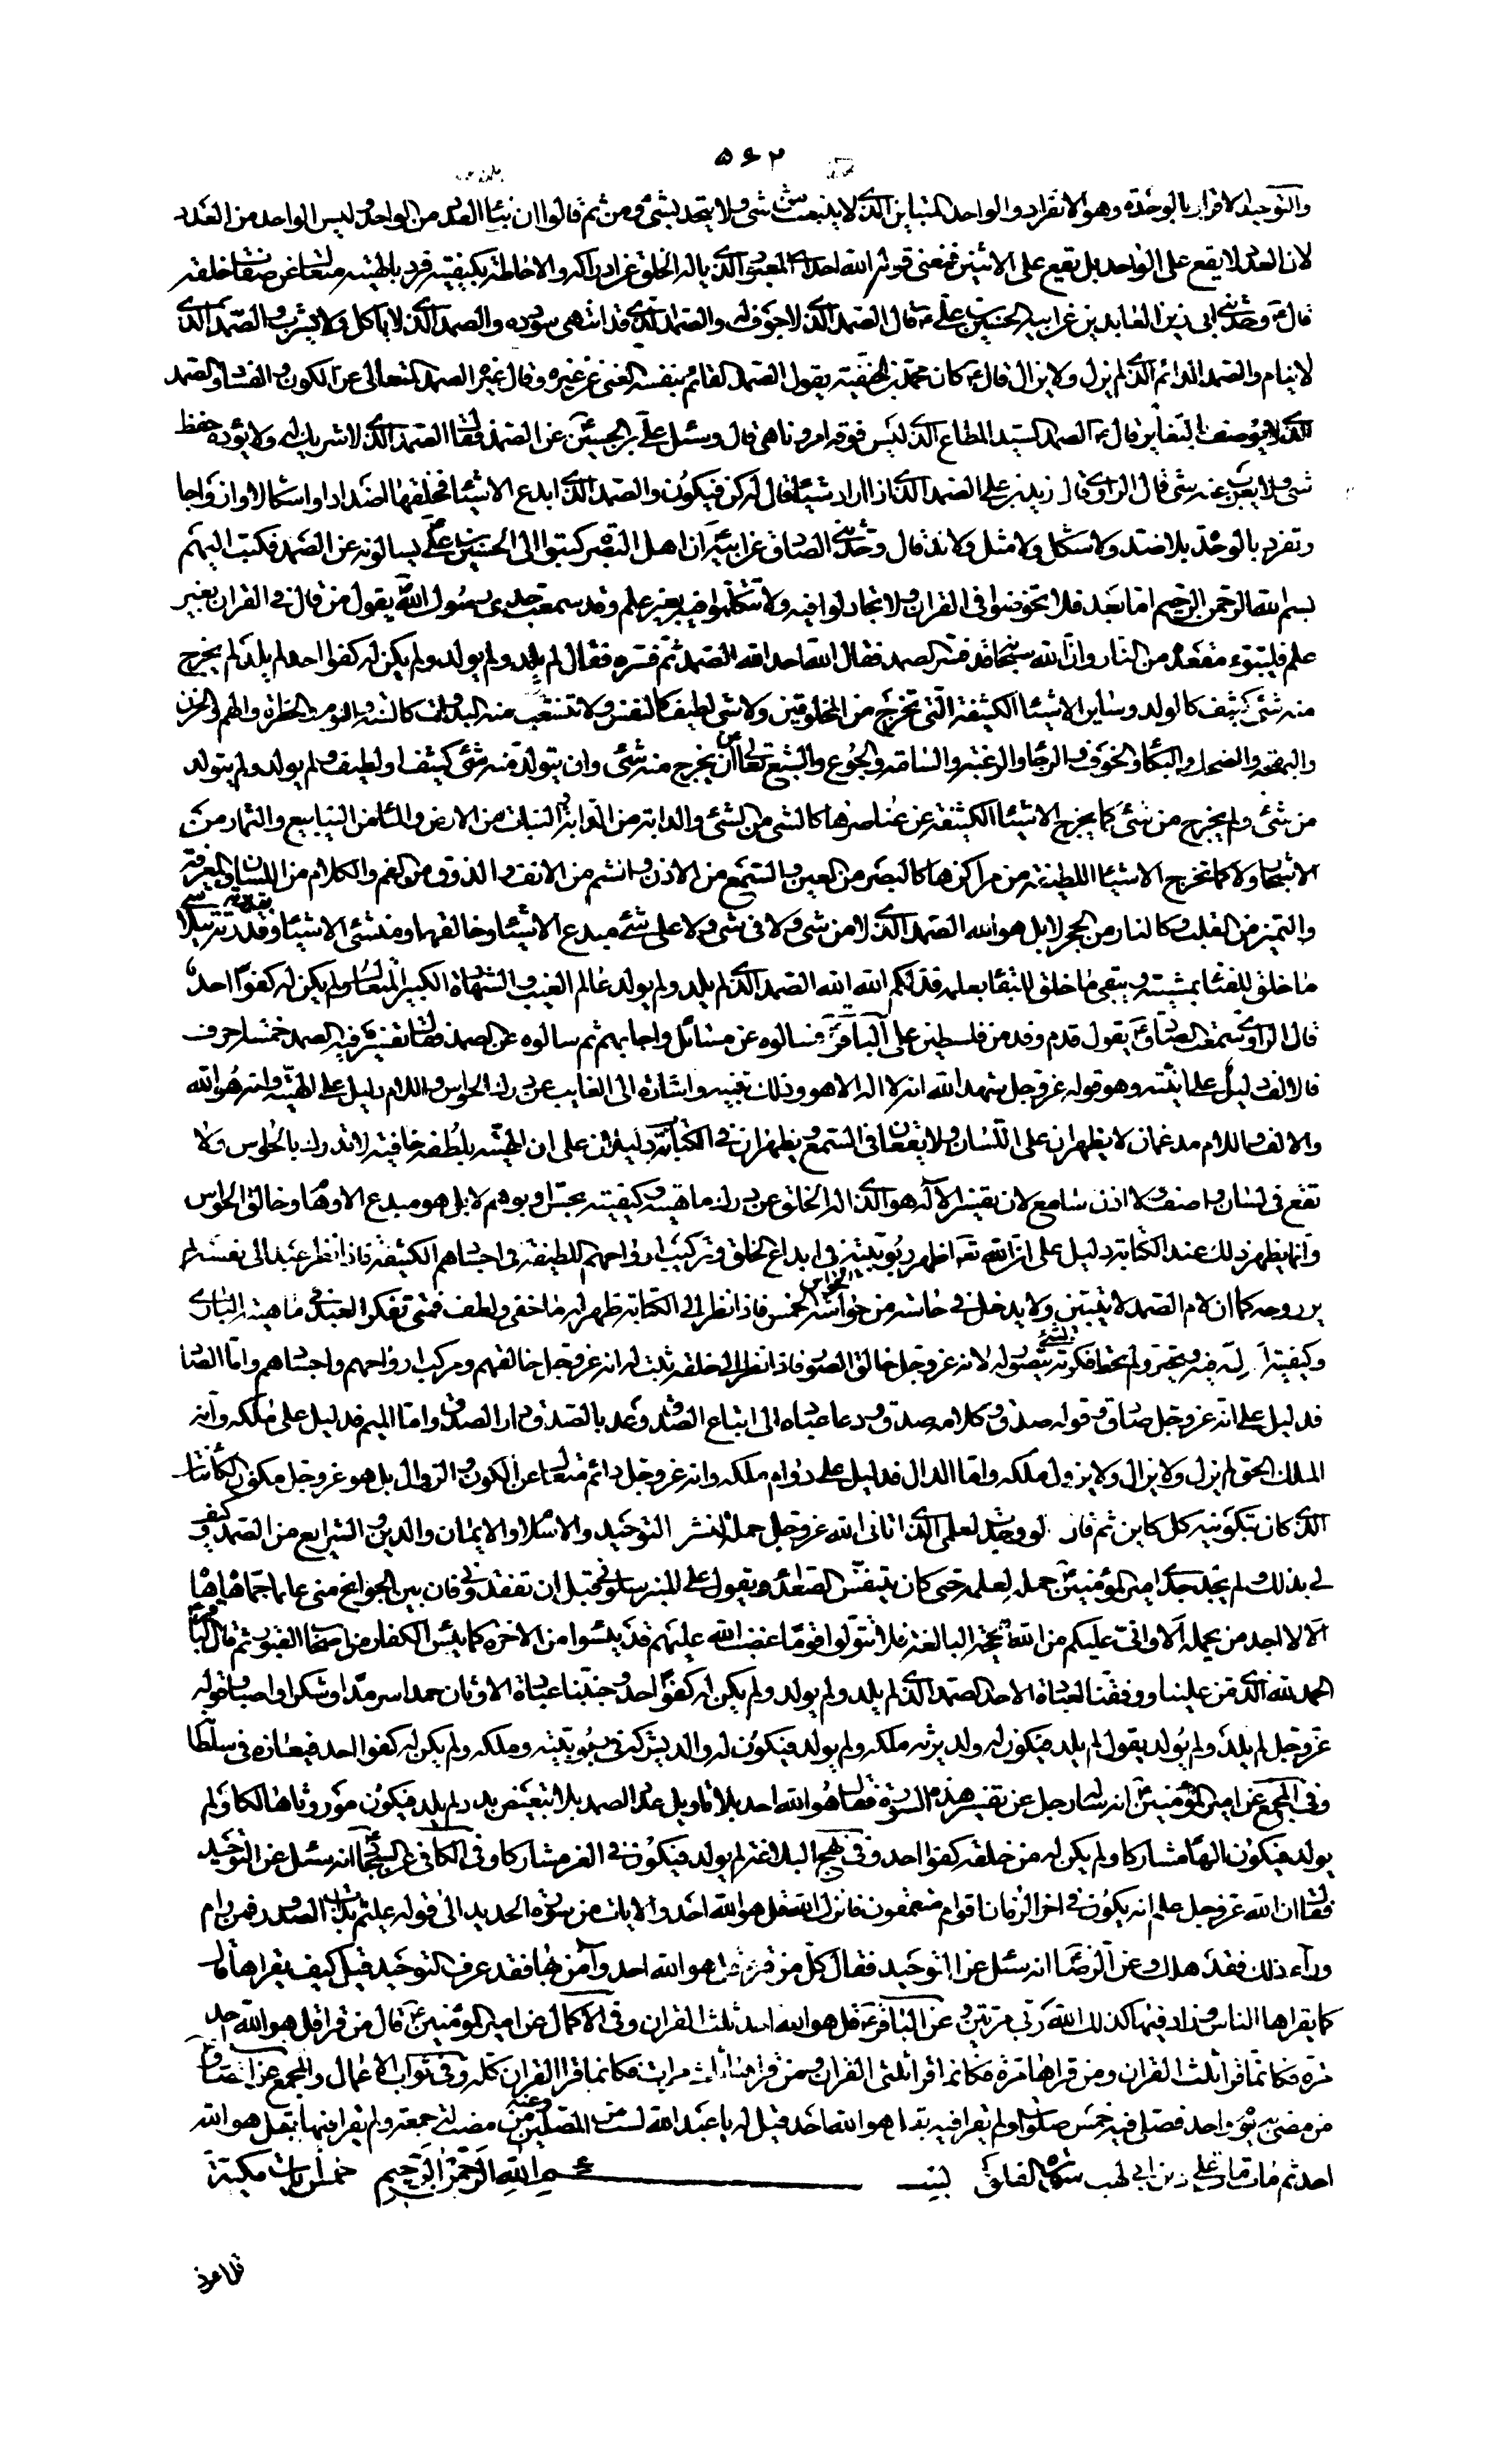 ٥٦٢
والتوحيد الاقرار بالوحدة وهو الانفراد والواحد المتباين الذي لا ينبعث من شئ ولا يتحد بشئ ومن ثم قالوا ان بناء العدد من الواحد وليس الواحد من العدد
لان العدد لا يقع على الواحد بل يقع على الاثنين فمعنى قوله الله احد اي المعبود الذي ياله الخلق عن ادراكه والاحاطة بكيفيته فرد بالهيته متعال عن صفات خلقه
قال ع وحدثني ابي زين العابدين عن ابيه الحسين بن علي ع قال الصمد الذي لا جوف له والصمد الذي قد انتهى سودده والصمد الذي لا ياكل ولا يشرب والصمد الذي
لا ينام والصمد الدائم الذي لم يزل ولا يزال قال ع كان محمد بن الحنفية يقول الصمد القائم بنفسه الغني عن غيره وقال غيره الصمد المتعالي عن الكون والفساد والصمد
الذي لا يوصف بالتغاير قال ع الصمد السيد المطاع الذي ليس فوقه امر وناهي قال وسئل علي بن الحسين ع عن الصمد فقال الصمد الذي لا شريك له ولا يؤده حفظ
شئ ولا يعزب عنه شئ قال الراوي قال زيد بن علي الصمد الذي اذا اراد شيئا قال له كن فيكون والصمد الذي ابدع الاشياء فخلقها اضدادا واشكالا وازواجا
وتفرد بالوحدة بلا ضد ولا شكل ولا مثل ولا ند قال وحدثني الصادق عن ابيه ع ان اهل البصرة كتبوا الى الحسين بن علي ع يسالونه عن الصمد فكتب اليهم
بسم الله الرحمن الرحيم اما بعد فلا تخوضوا في القران ولا تجادلوا فيه ولا تتكلموا فيه بغير علم وقد سمعت جدي رسول الله ص يقول من قال في القران بغير
علم فليتبوء مقعده من النار وان الله سبحانه قد فسر الصمد فقال الله احد الله الصمد ثم فسره فقال لم يلد ولم يولد ولم يكن له كفوا احد لم يلد لم يخرج
منه شئ كثيف كالولد وساير الاشياء الكثيفة التي تخرج من المخلوقين ولا شئ لطيف كالنفس ولا تتشعب منه البدوات كالسنة والنوم والخطرة والهم والحزن
والبهجة والضحك والبكاء والخوف والرجاء والرغبة والسامة والجوع والشبع تعالى عن ان يخرج منه شئ وان يتولد منه شئ كثيف او لطيف ولم يولد ولم يتولد
من شئ ولم يخرج من شئ كما يخرج الاشياء الكثيفة عن عناصرها كالشئ من الشئ والدابة من الدابة والنبات من الارض والماء من الينابيع والثمار من
الاشجار ولا كما تخرج الاشياء اللطيفة من مراكزها كالبصر من العين والسمع من الاذن والشم من الانف والذوق من الفم والكلام من اللسان والمعرفة
والتميز من القلب وكالنار من الحجر لا بل هو الله الصمد الذي لا من شئ ولا في شئ ولا على شئ مبدع الاشياء وخالقها ومنشئ الاشياء بقدرته يتلاشى
ما خلق للفناء بمشيته ويبقى ما خلق للبقاء بعلمه فذلكم الله الله الصمد الذي لم يلد ولم يولد عالم الغيب والشهادة الكبير المتعال ولم يكن له كفوا احد
قال الراوي سمعت الصادق ع يقول قدم وفد من فلسطين على الباقر ع فسالوه عن مسائل واجابهم ثم سالوه عن الصمد فقال تفسيره فيه الصمد خمسة احرف
فالالف دليل على انيته وهو قوله عز وجل شهد الله انه لا اله الا هو وذلك تنبيه واشارة الى الغايب عن درك الحواس واللام دليل على الهيته وانه هو الله
والالف واللام مدغمان لا يظهران على اللسان ولا يقعان في السمع ويظهران في الكتابة دليلان على ان الهيته بلطفه خافية لا تدرك بالحواس ولا
تقع في لسان واصف ولا اذن سامع لان تفسير الاله هو الذي اله الخلق عن درك ماهيته وكيفيته بحس او بوهم لا بل هو مبدع الاوهام وخالق الحواس
وانما يظهر ذلك عند الكتابة دليل على ان الله تعه اظهر ربوبيته في ابداع الخلق وتركيب ارواحهم اللطيفة في اجسادهم الكثيفة فاذا نظر عبد الى نفسه لم
ير روحه كما ان لام الصمد لا يتبين ولا يدخل في حاسة من حواسه الخمس فاذا نظر الى الكتابة ظهر له ما خفى ولطف فمتى تفكر العبد في ماهية الباري
وكيفيته اله فيه وتحير ولم تحط فكرته بشئ يتصور له لانه عز وجل خالق الصور فاذا نظر الى خلقه ثبت له انه عز وجل خالقهم ومركب ارواحهم واجسادهم واما الصاد
فدليل على انه عز وجل صادق وقوله صدق وكلامه صدق ودعا عباده الى اتباع الصدق بالصدق ووعد بالصدق دار الصدق واما الميم فدليل على ملكه وانه
الملك الحق لم يزل ولا يزال ولا يزول ملكه واما الدال فدليل على دوام ملكه وانه عز وجل دائم متعال عن الكون والزوال بل هو عز وجل مكون الكائنات
الذي كان بتكوينه كل كاين ثم قال لو وجدت لعلمي الذي اتاني الله عز وجل حملة لنشرت التوحيد والاسلام والايمان والدين والشرايع من الصمد وكيف
لي بذلك ولم يجد جدي امير المؤمنين ع حملة لعلمه حتى كان يتنفس الصعداء ويقول على المنبر سلوني قبل ان تفقدوني فان بين الجوانح مني علما جما هاه هاه
الا لا اجد من يحمله الا واني عليكم من الله الحجة البالغة فلا تتولوا قوما غضب الله عليهم قد يئسوا من الاخرة كما يئس الكفار من اصحاب القبور ثم قال الباقر ع
الحمد لله الذي من علينا ووفقنا لعبادة الاحد الصمد الذي لم يلد ولم يولد ولم يكن له كفوا احد وجنبنا عبادة الاوثان حمدا سرمدا وشكرا واصبا وقوله
عز وجل لم يلد ولم يولد يقول لم يلد فيكون له ولد يرثه ملكه ولم يولد فيكون له والد يشركه في ربوبيته وملكه ولم يكن له كفوا احد فيعازه في سلطانه
وفي المجمع عن امير المؤمنين ع انه ساله رجل عن تفسير هذه السورة فقال هو الله احد بلا تاويل عدد الصمد بلا تبعيض بدد لم يلد فيكون موروثا هالكا ولم
يولد فيكون الها مشاركا ولم يكن له من خلقه كفوا احد وفي نهج البلاغة لم يولد فيكون في العز مشاركا وفي الكافي عن السجاد ع انه سئل عن التوحيد
فقال ان الله عز وجل علم انه يكون في اخر الزمان اقوام متعمقون فانزل الله قل هو الله احد والايات من سورة الحديد الى قوله عليم بذات الصدور فمن رام
وراء ذلك فقد هلك وعن الرضا ع انه سئل عن التوحيد فقال كل من قرء قل هو الله احد وآمن بها فقد عرف التوحيد قيل كيف يقراها قال
كما يقراها الناس وزاد فيها كذلك الله ربي مرتين وعن الباقر ع قل هو الله احد ثلث القران وفي الاكمال عن امير المؤمنين ع قال من قرا قل هو الله احد
مرة فكانما قرا ثلث القران ومن قراها مرتين فكانما قرا ثلثي القران ومن قراها ثلاث مرات فكانما قرا القران كله وفي ثواب الاعمال والمجمع عن الصادق ع
من مضى به يوم واحد فصلى فيه خمس صلوات ولم يقرا فيه بقل هو الله احد قيل له يا عبد الله لست من المصلين وعنه من مضت له جمعة ولم يقرا فيها بقل هو الله
احد ثم مات مات على دين ابي لهب سورة الفلق بسم الله الرحمن الرحيم خمس ايات مكية
قل اعوذ